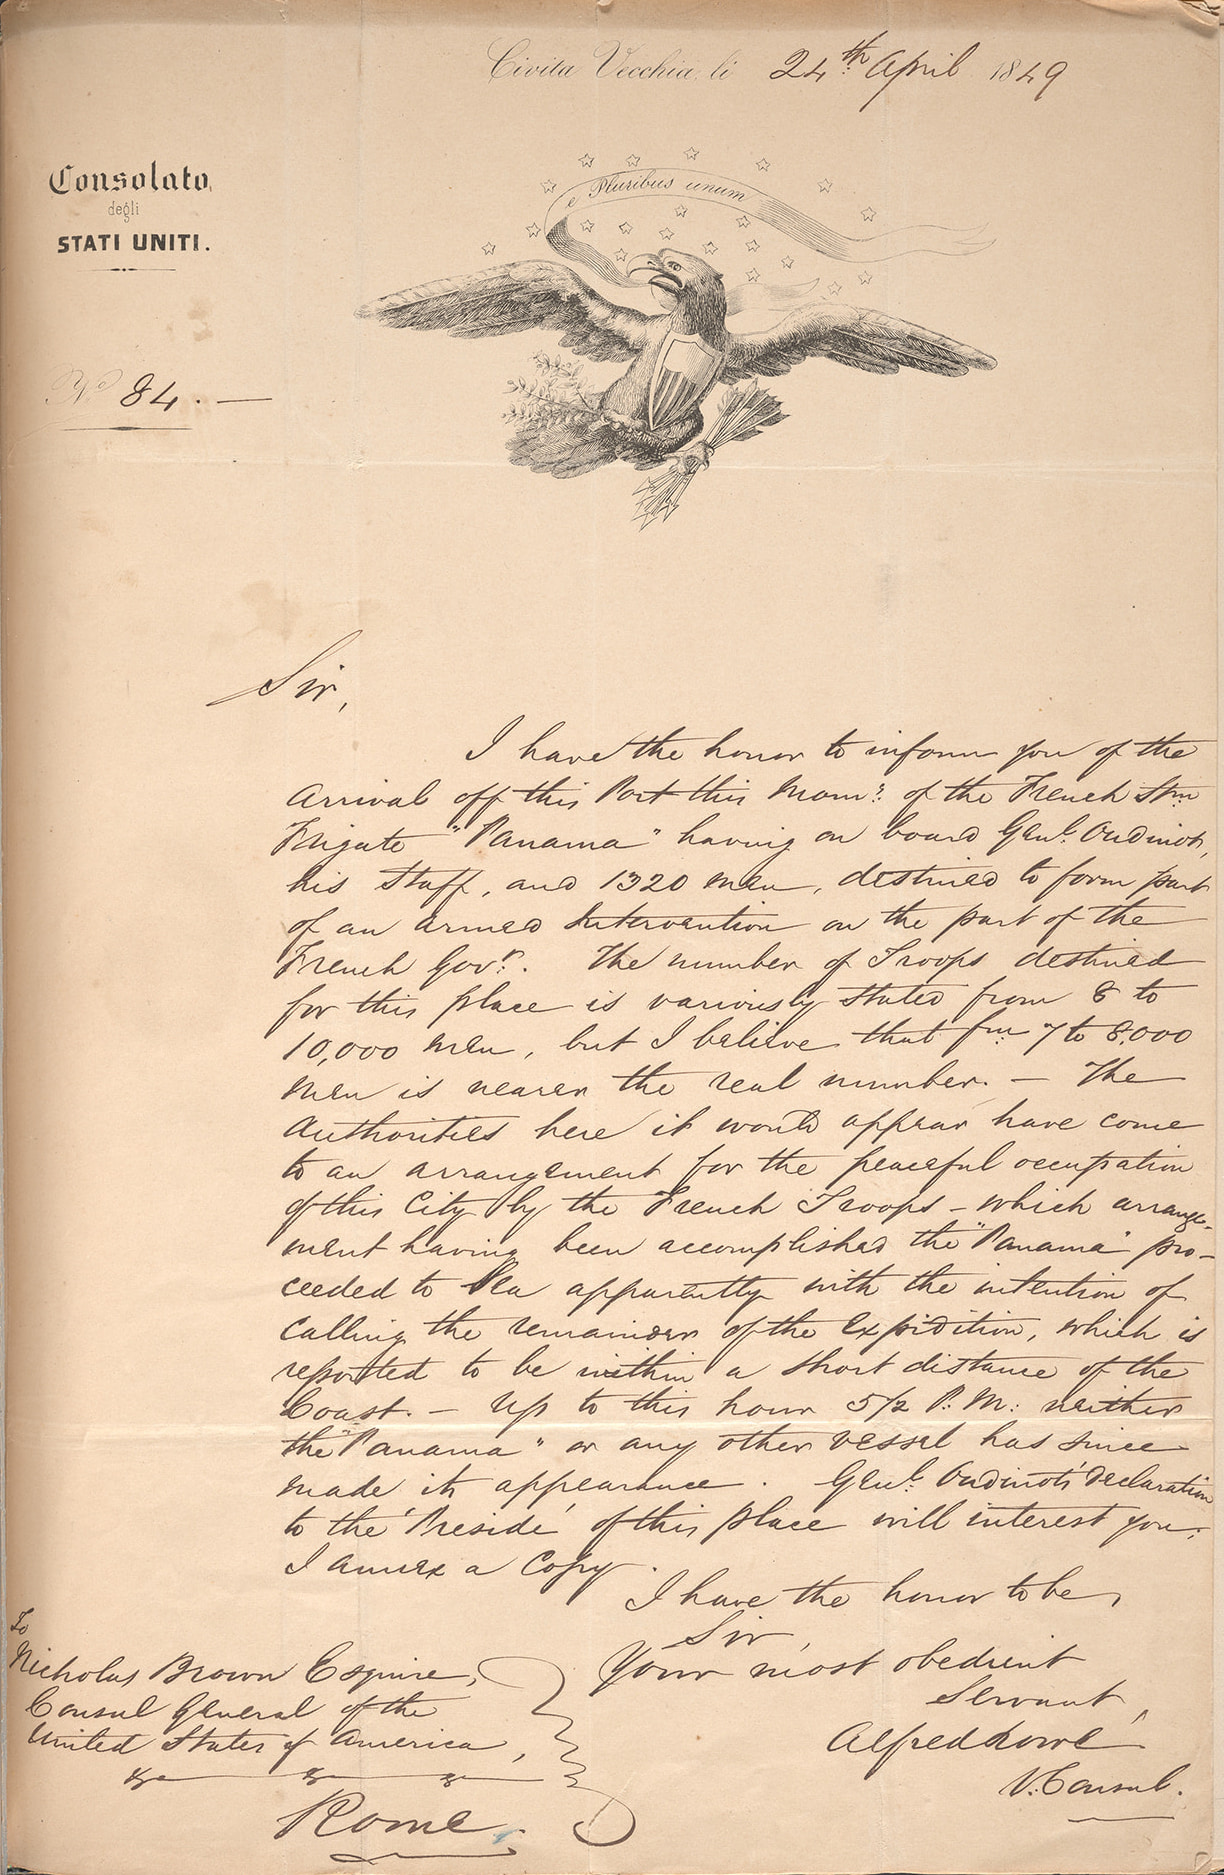 Civita Vecchia li 24th April 1849
Consolato
degli
STATI UNITI.
e Pluribus unum
No 84. —
Sir,
I have the honor to inform you of the
arrival off this Port this Morng. of the French Stm
Frigate "Panama" having on board Genl. Oudinot,
his Staff, and 1320 men, destined to form part
of an armed Intervention on the part of the
French Govt. The number of Troops destined
for this place is variously stated from 8 to
10,000 men, but I believe that fm 7 to 8,000
men is nearer the real number. — The
Authorities here it would appear have come
to an arrangement for the peaceful occupation
of this City by the French Troops – which arrange-
ment having been accomplished the "Panama" pro-
ceeded to Sea apparently with the intention of
calling the remainder of the Expidition, which is
reported to be within a short distance of the
Coast. — Up to this hour 5½ P.M: neither
the "Panama" or any other vessel has since
made its appearance. Genl. Oudinots' declaration
to the 'Preside' of this place will interest you;
I annex a Copy.
I have the honor to be,
Sir,
Your most obedient
Servant,
Alfred Lowe
V: Consul.
To
Nicholas Brown Esquire,
Consul General of the
United States of America,
&c &c &c
Rome.